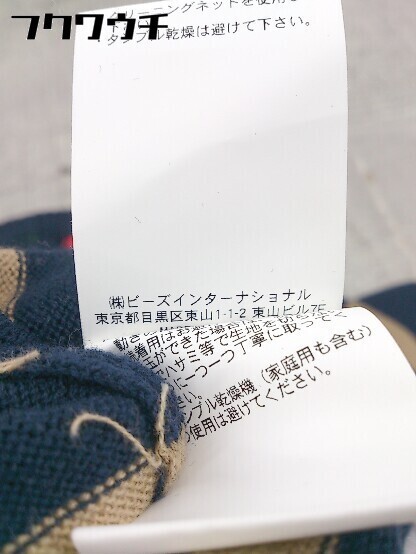 フクワウチ
クリーニングネットを使用し
下さい。
タンブル乾燥は避けて下さい。
㈱ビーズインターナショナル
東京都目黒区東山1-1-2 東山ビル7F
着用
ができた場合
ハサミ等で生地を切
に一つ一つ丁寧に取って
い。
ンブル乾燥機（家庭用も含む）
の使用は避けてください。